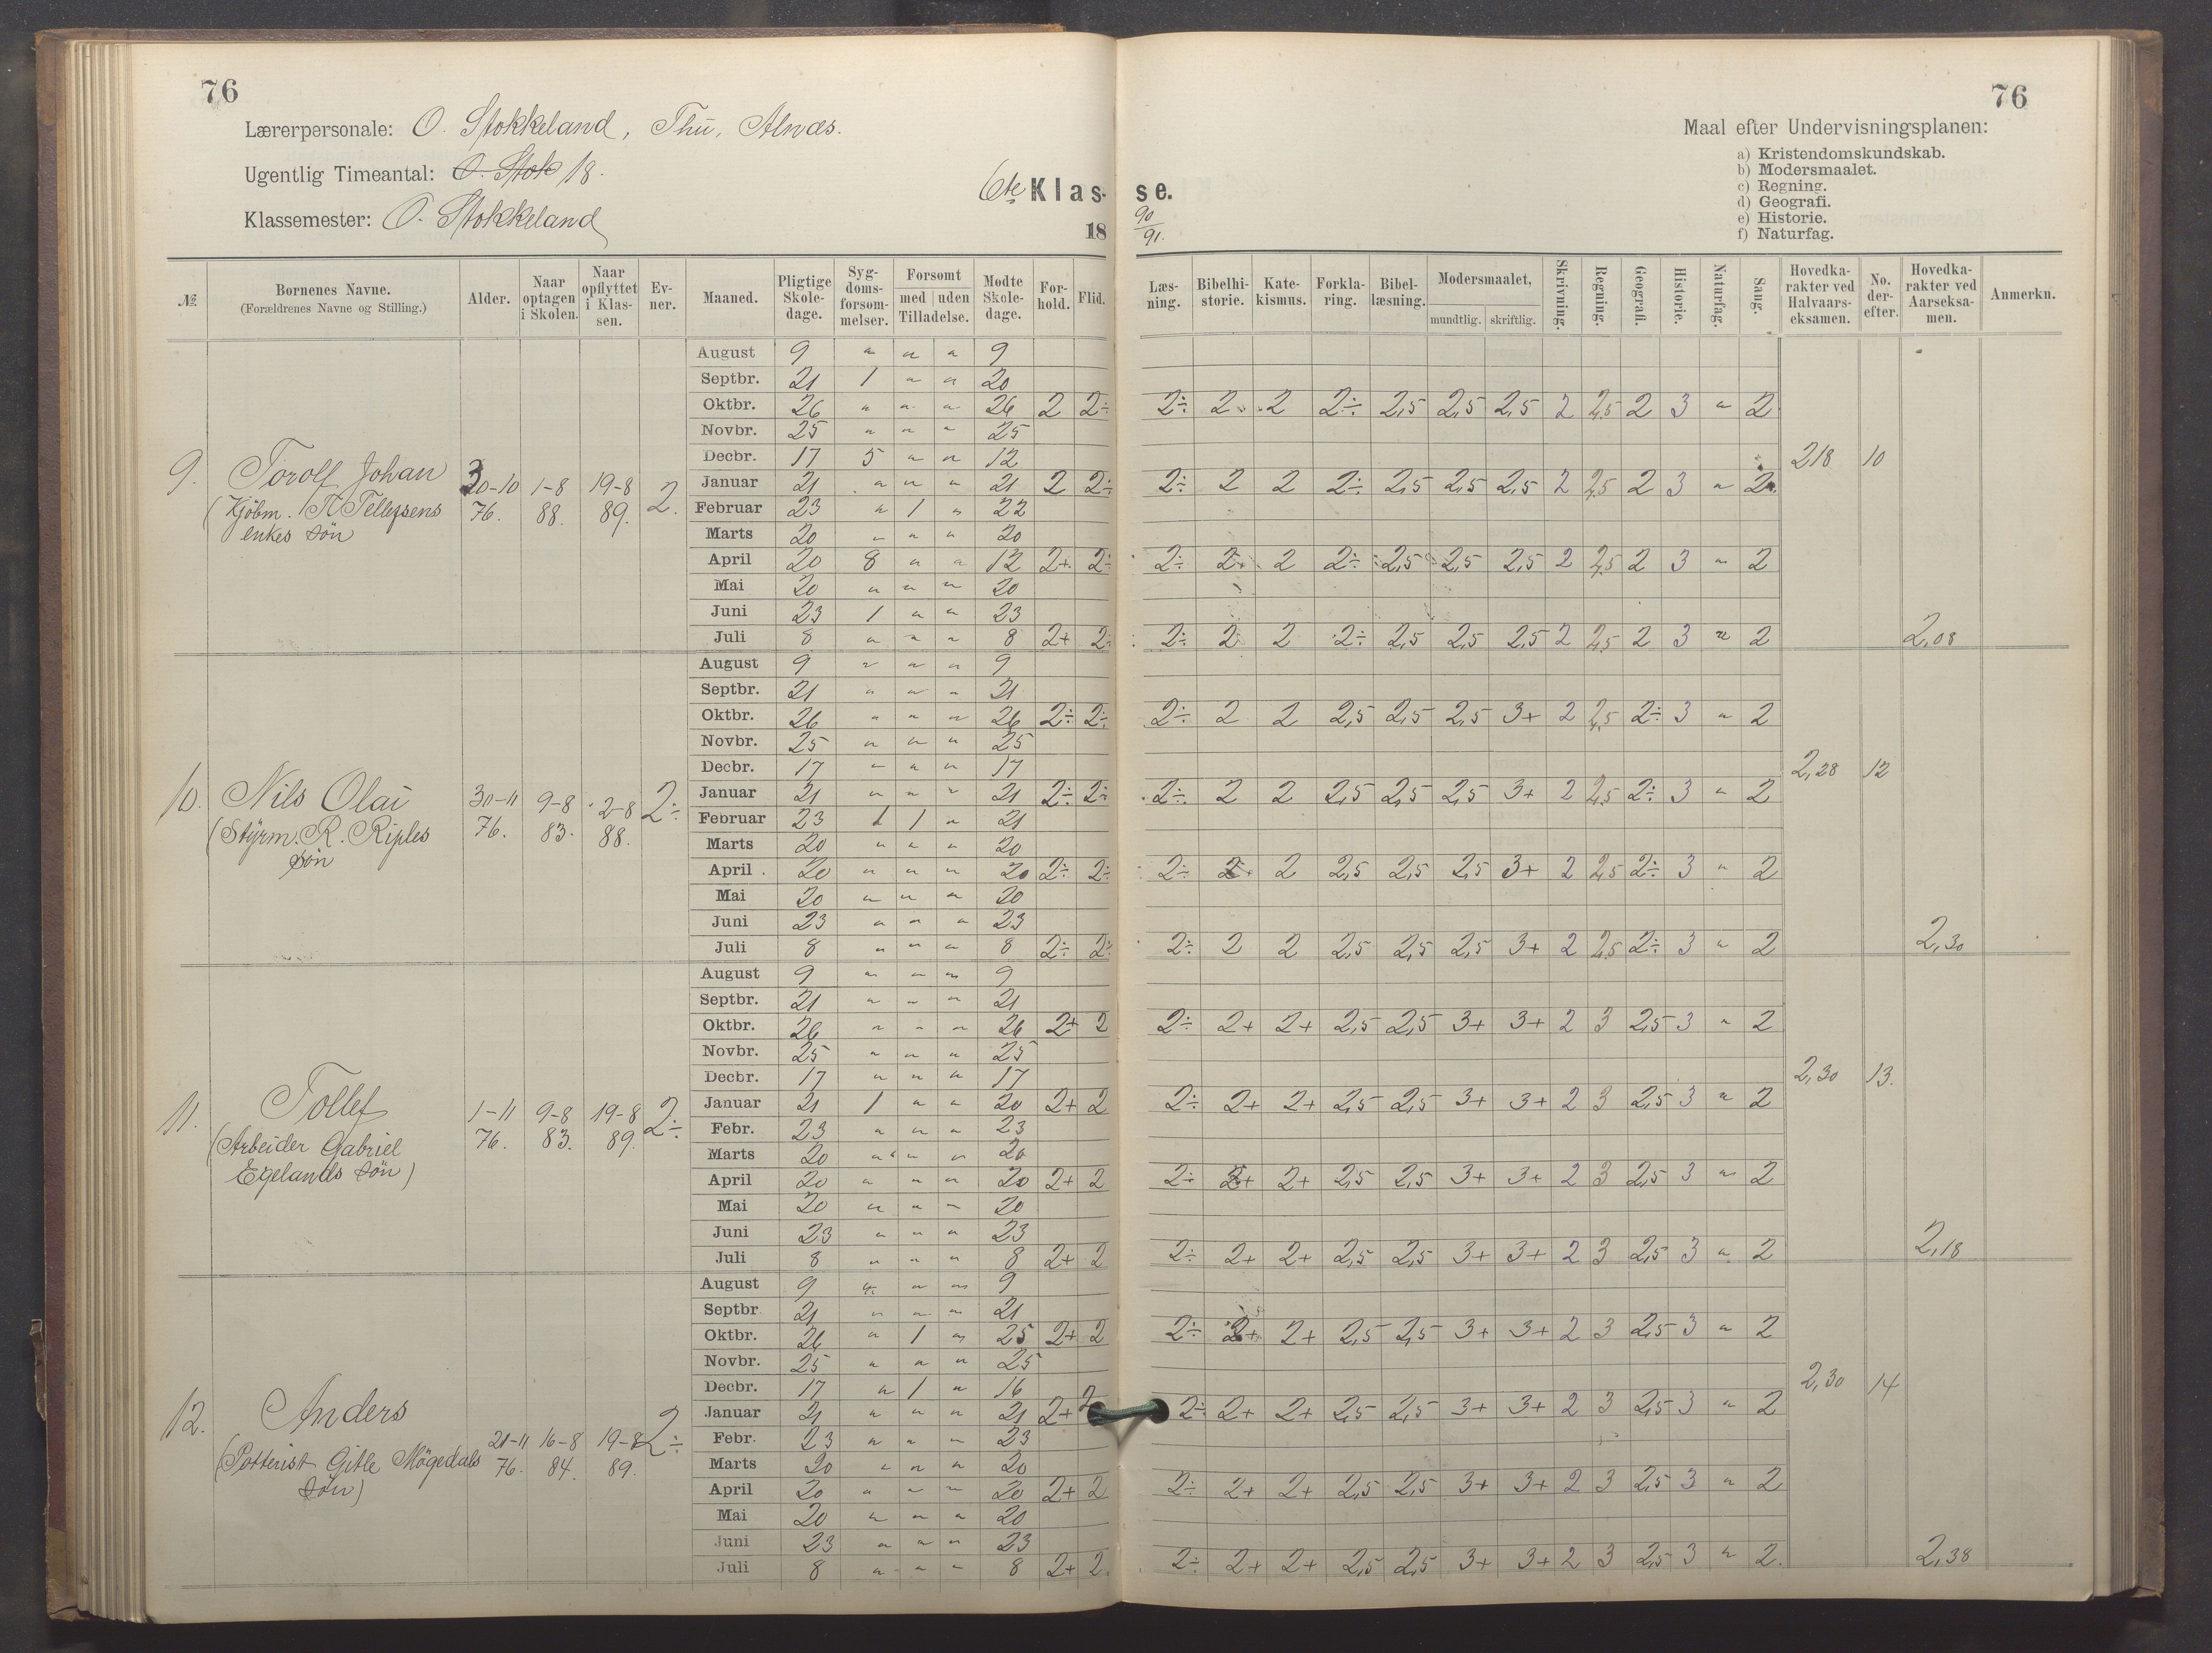 76
76
Lærerpersonale: O. Stokkeland, Thu, Alnæs.
Ugentlig Timeantal: O. Stok 18.
Klassemester: O. Stokkeland
6te Klasse.
18 90/91.
Maal efter Undervisningsplanen:
a) Kristendomskundskab.
b) Modersmaalet.
c) Regning.
d) Geografi.
e) Historie.
f) Naturfag.
№ | Børnenes Navne. (Forældrenes Navne og Stilling.) | Alder. | Naar optagen i Skolen. | Naar opflyttet i Klassen. | Evner. | Maaned. | Pligtige Skoledage. | Sygdomsforsommelser. | Forsomt med | uden Tilladelse. | Mødte Skoledage. | Forhold. | Flid. | Læsning. | Bibelhistorie. | Katekismus. | Forklaring. | Bibellæsning. | Modersmaalet, mundtlig. | skriftlig. | Skrivning. | Regning. | Geografi. | Historie. | Naturfag. | Sang. | Hovedkarakter ved Halvaarseksamen. | No. derefter. | Hovedkarakter ved Aarseksamen. | Anmerkn.
9. Torolf Johan
(Kjöbm. T. Tellefsens
enkes søn
30-10 76. | 1-8 88. | 19-8 89. | 2.
August 9 " " " 9
Septbr. 21 1 " " 20
Oktbr. 26 " " " 26 2 2÷ 2÷ 2 2 2÷ 2,5 2,5 2,5 2 2,5 2 3 " 2
Novbr. 25 " " " 25
Decbr. 17 5 " " 12 218 10
Januar 21 " " " 21 2 2÷ 2÷ 2 2 2÷ 2,5 2,5 2,5 2 2,5 2 3 " 2
Februar 23 " 1 " 22
Marts 20 " " " 20
April 20 8 " " 12 2+ 2÷ 2÷ 2 2 2÷ 2,5 2,5 2,5 2 2,5 2 3 " 2
Mai 20 " " " 20
Juni 23 1 " " 23
Juli 8 " " " 8 2+ 2÷ 2÷ 2 2 2÷ 2,5 2,5 2,5 2 2,5 2 3 " 2 2,08
10. Nils Olai
(Styrm. R. Riples
søn
30-11 76. | 9-8 83. | 2-8 88. | 2÷
August 9 " " " 9
Septbr. 21 " " " 21
Oktbr. 26 " " " 26 2÷ 2÷ 2÷ 2 2 2,5 2,5 2,5 3+ 2 2,5 2÷ 3 " 2
Novbr. 25 " " " 25
Decbr. 17 " " " 17 2,28 12
Januar 21 " " " 21 2÷ 2÷ 2÷ 2 2 2,5 2,5 2,5 3+ 2 2,5 2÷ 3 " 2
Februar 23 1 1 " 21
Marts 20 " " " 20
April 20 " " " 20 2÷ 2÷ 2÷ 2 2 2,5 2,5 2,5 3+ 2 2,5 2÷ 3 " 2
Mai 20 " " " 20
Juni 23 " " " 23
Juli 8 " " " 8 2÷ 2÷ 2÷ 2 2 2,5 2,5 2,5 3+ 2 2,5 2÷ 3 " 2 2,30
11. Tollef
(Arbeider Gabriel
Egelands søn)
1-11 76. | 9-8 83. | 19-8 89. | 2÷
August 9 " " " 9
Septbr. 21 " " " 21
Oktbr. 26 " " " 26 2+ 2 2÷ 2+ 2+ 2,5 2,5 3+ 3+ 2 3 2,5 3 " 2
Novbr. 25 " " " 25
Decbr. 17 " " " 17 2,30 13.
Januar 21 1 " " 20 2+ 2 2÷ 2+ 2+ 2,5 2,5 3+ 3+ 2 3 2,5 3 " 2
Febr. 23 " " " 23
Marts 20 " " " 20
April 20 " " " 20 2+ 2 2÷ 2+ 2+ 2,5 2,5 3+ 3+ 2 3 2,5 3 " 2
Mai 20 " " " 20
Juni 23 " " " 23
Juli 8 " " " 8 2+ 2 2÷ 2+ 2+ 2,5 2,5 3+ 3+ 2 3 2,5 3 " 2 2,18
12. Anders
(Potterist Gitle Mögedals
søn)
21-11 76. | 16-8 84. | 19-8 89. | 2÷
August 9 " " " 9
Septbr 21 " " " 21
Oktbr. 26 " 1 " 25 2+ 2 2÷ 2+ 2+ 2,5 2,5 3+ 3+ 2 3 2,5 3 " 2
Novbr. 25 " " " 25
Decbr. 17 " 1 " 16 2,30 14
Januar 21 " " " 21 2+ 2 2÷ 2+ 2+ 2,5 2,5 3+ 3+ 2 3 2,5 3 " 2
Febr. 23 " " " 23
Marts 20 " " " 20
April 20 " " " 20 2+ 2 2÷ 2+ 2+ 2,5 2,5 3+ 3+ 2 3 2,5 3 " 2
Mai 20 " " " 20
Juni 23 " " " 23
Juli 8 " " " 8 2+ 2. 2÷ 2+ 2+ 2,5 2,5 3+ 3+ 2 3 2,5 3 " 2. 2,38